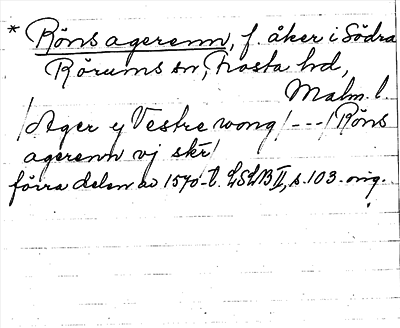 * Röns agerenn, f. åker i Södra
Rörums sn, Frosta hd,
Malm. l.
/Ager ej Vestre wong/---/Röns
agerenn vj skr/
förra delen av 1570-t. LSLB II, s. 103. orig.